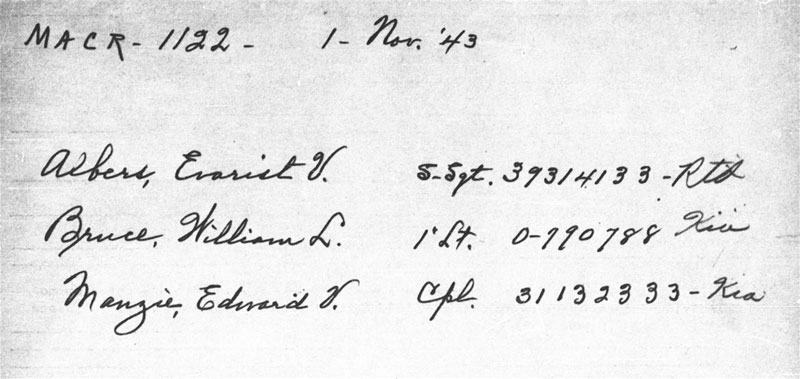 MACR - 1122 - 1 - Nov. '43
Albers, Evarist V. S-Sgt. 39314133 - Rtd
Bruce, William L. 1' Lt. 0-790788 Kia
Manzie, Edward V. Cpl. 31132333 - Kia